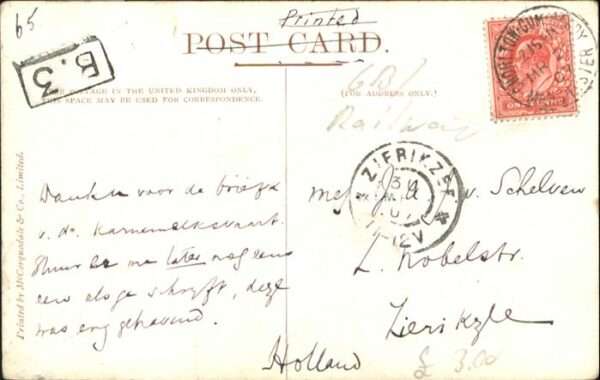 65
Printed
POST CARD.
B.3
FOR POSTAGE IN THE UNITED KINGDOM ONLY,
THIS SPACE MAY BE USED FOR CORRESPONDENCE.
(FOR ADDRESS ONLY.)
GB/
Railway
CHORLTON-CUM-HARDY
ONE PENNY
ZIERIKZEE
11-12V
Printed by McCorquodale & Co., Limited.
Danke voor de briefk
v. de Karnemelksvaart.
Stuur er me later nog eens
een als ge schryft, deze
was erg gehavend.
Mej. J. A. v. Schelven
L. Nobelstr.
Zierikzee
Holland
£ 3.00